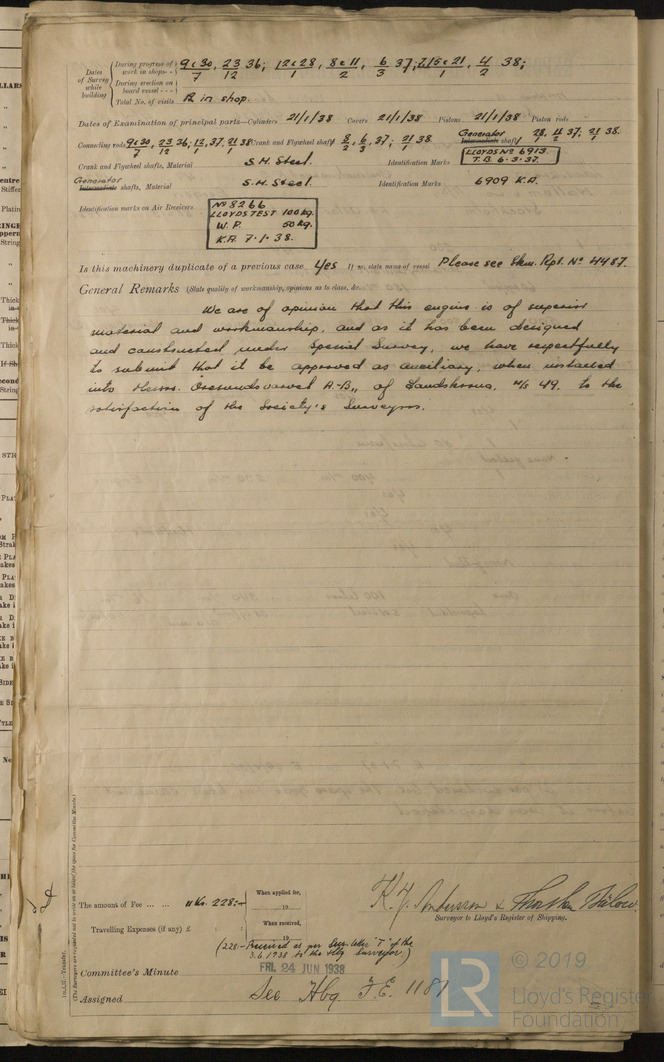 Dates of Survey while building
During progress of work in shops - - 9 & 30/7, 23/12 36; 12 & 28/1, 8 & 11/2, 6/3 37; 21/1, 4/2 38;
During erection on board vessel - - -
Total No. of visits 12 in shop.
Dates of Examination of principal parts—Cylinders 21/1/38 Covers 21/1/38 Pistons 21/1/38 Piston rods
Connecting rods 9 & 30/7, 23/12 36; 12, 37, 21/1 38 Crank and Flywheel shafts 8/2, 6/3, 37; 21/1 38 Generator Intermediate shaft 28/1, 11/2 37; 21/1 38.
Crank and Flywheel shafts, Material S.M. Steel. Identification Marks LLOYDS No 6913. T.B. 6.3.37.
Generator Intermediate shafts, Material S.M. Steel. Identification Marks 6909 K.A.
Identification marks on Air Receivers No 8266
LLOYDS TEST 100 kg.
W.P. 50 kg.
K.A. 7.1.38.
Is this machinery duplicate of a previous case Yes If so, state name of vessel Please see Rpt. No 4487.
General Remarks (State quality of workmanship, opinions as to class, &c.
We are of opinion that this engine is of superior
material and workmanship, and as it has been designed
and constructed under Special Survey, we have respectfully
to submit that it be approved as auxiliary, when installed
into Messrs. Oresundsvarvet A.-B., of Landskrona, No 49. to the
satisfaction of the Society's Surveyors.
The amount of Fee ... ... Kr. 228:-
When applied for,
19
Travelling Expenses (if any) £
When received,
19
(228:- Received as per letter "T" of the
3.6.1938 to the Hbg Surveyor)
K.J. Andersson & Bülow
Surveyor to Lloyd's Register of Shipping.
Committee's Minute FRI. 24 JUN 1938
Assigned See Hbg F.E. 1187
(The Surveyors are requested not to write on or below the space for Committee's Minute.)
© 2019
LR Lloyd's Register
Foundation